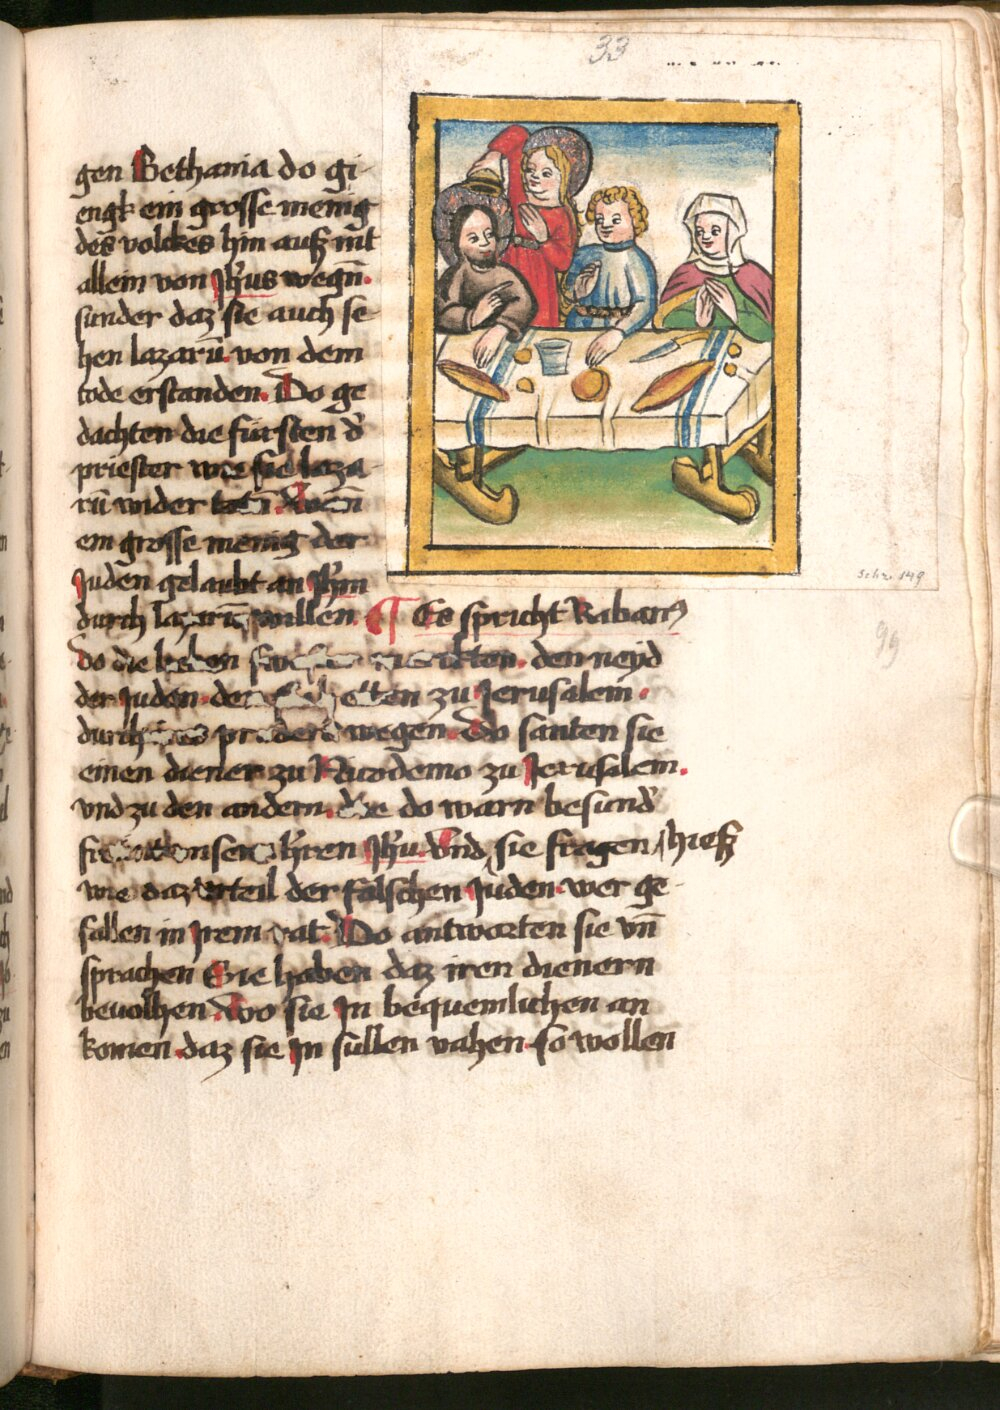 33
gen Bethania do gi-
engk ein grosse menig
des volckes hin auß nit
allein von Jh̄us wegn̄.
sunder daz sie auch se
hen lazarū von dem
tode erstanden. Do ge
dachten die fürsten d'
priester wie sie laza-
rū wider
ein grosse menig der
Juden gelaubt an Jh̄m
durch lazarū willen. ¶ Es spricht Rabanus
do die den neyd
der Juden zu Jerusalem.
durch wegen. Do santen sie
einen diener zu Nicodemo zu Jerusalem.
vnd zu den andern. die do warn besund'
h'ren Jh̄u. Vnd sie fragen hieß
wie daz vrteil der falschen Juden wer ge-
fallen in Jrem rat. Do antworten sie vn̄
sprachen Sie haben daz iren dienern
beuolhen. Wo sie Jn bequemlichen an
komen daz sie Jn sullen vahen. so wollen
Schr. 149
99